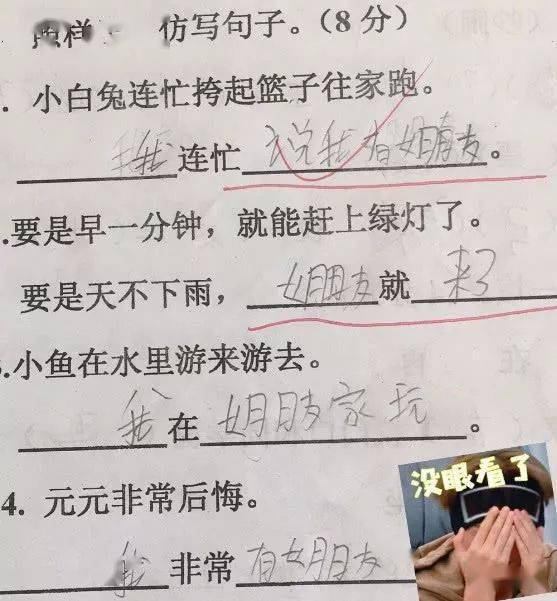 照样 仿写句子。(8分)
. 小白兔连忙挎起篮子往家跑。
我连忙说我有女朋友。
.要是早一分钟，就能赶上绿灯了。
要是天不下雨，女朋友就来了
.小鱼在水里游来游去。
我在女朋友家玩。
4. 元元非常后悔。
我非常有女朋友
没眼看了